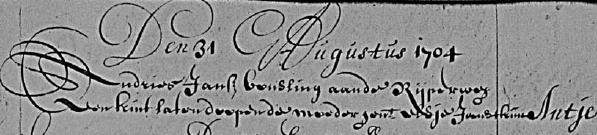 Den 31 Augustus 1704
Andries Jansz bonsling aande Rijperweg
Een kint laten doopende moeder gent Jansz Antje